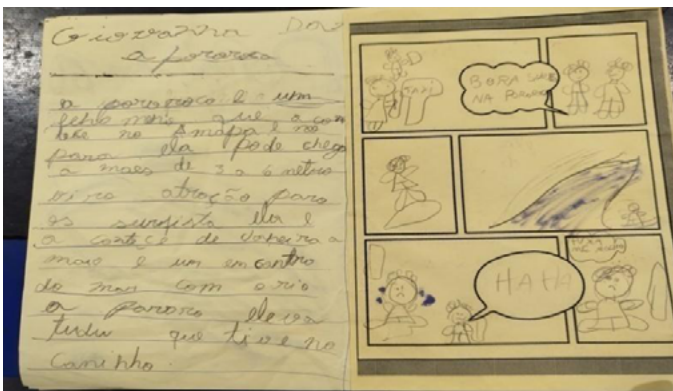 Giovanna
a pororoca
a pororoca é um
fenomeno que acon
tece no Amapa e no
para ela pode chega
a maes de 3 a 6 metro
vira atração para
os surfista ela é
a conteçe de Janeiro a
maio e um em contro
do mar com o rio
a pororo leva
tudu que tive no
caminho.
BORA
NA
HAHA